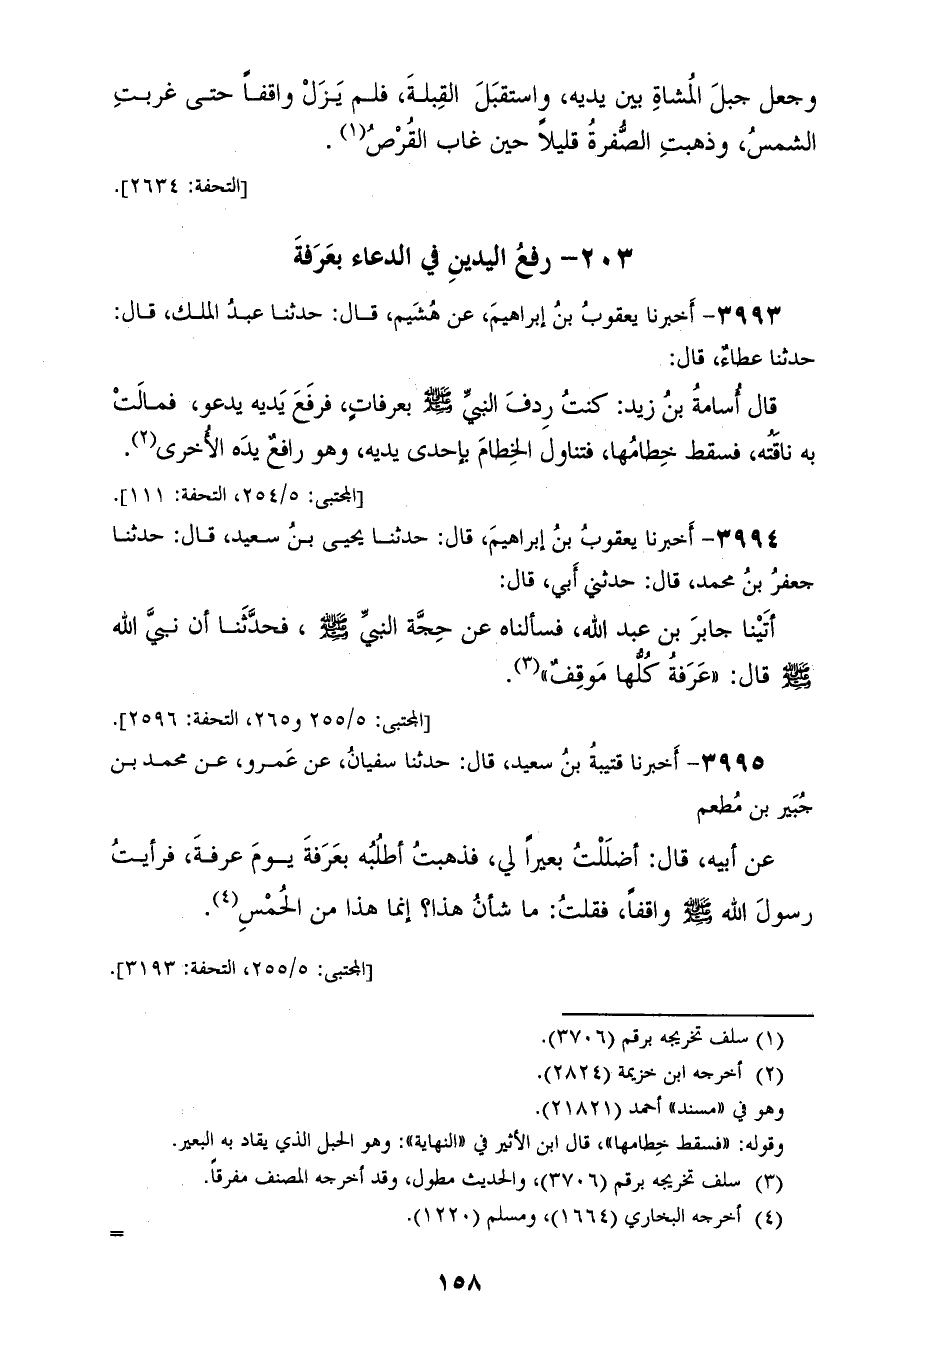 وجعل حبلَ المُشاةِ بين يديه، واستقبَلَ القِبلةَ، فلم يَزَلْ واقفاً حتى غربتِ
الشمسُ، وذهبتِ الصُّفرةُ قليلاً حين غاب القُرْصُ(١).
[التحفة: ٢٦٣٤].
٢٠٣- رفعُ اليدينِ في الدعاء بعَرَفةَ
٣٩٩٣- أَخبرنا يعقوبُ بنُ إبراهيمَ، عن هُشَيم، قال: حدثنا عبدُ الملك، قال:
حدثنا عطاءٌ، قال:
قال أُسامةُ بنُ زيد: كنتُ رِدفَ النبيِّ ﷺ بعرفاتٍ، فرفَعَ يَديه يدعو، فمالَتْ
به ناقتُه، فسقط خِطامُها، فتناول الخِطامَ بإحدى يديه، وهو رافعٌ يدَه الأُخرى(٢).
[المجتبى: ٢٥٤/٥، التحفة: ١١١].
٣٩٩٤- أَخبرنا يعقوبُ بنُ إبراهيمَ، قال: حدثنا يحيى بنُ سعيد، قال: حدثنا
جعفرُ بنُ محمد، قال: حدثني أَبي، قال:
أتَيْنا جابرَ بن عبد الله، فسألناه عن حِجَّة النبيِّ ﷺ ، فحدَّثَنا أن نبيَّ الله
ﷺ قال: «عَرَفةُ كُلُّها مَوقِفٌ»(٣).
[المجتبى: ٢٥٥/٥ و٢٦٥، التحفة: ٢٥٩٦].
٣٩٩٥- أَخبرنا قتيبةُ بنُ سعيد، قال: حدثنا سفيانُ، عن عَمرو، عن محمد بن
جُبَير بن مُطعم
عن أبيه، قال: أضلَلْتُ بعيراً لي، فذهبتُ أطلُبُه بعَرَفةَ يومَ عرفةَ، فرأيتُ
رسولَ الله ﷺ واقفاً، فقلتُ: ما شأنُ هذا؟ إنما هذا من الحُمْسِ(٤).
[المجتبى: ٢٥٥/٥، التحفة: ٣١٩٣].
(١) سلف تخريجه برقم (٣٧٠٦).
(٢) أخرجه ابن خزيمة (٢٨٢٤).
وهو في «مسند» أحمد (٢١٨٢١).
وقوله: «فسقط خِطامها»، قال ابن الأثير في «النهاية»: وهو الحبل الذي يقاد به البعير.
(٣) سلف تخريجه برقم (٣٧٠٦)، والحديث مطول، وقد أخرجه المصنف مفرقاً.
(٤) أخرجه البخاري (١٦٦٤)، ومسلم (١٢٢٠).
=
١٥٨